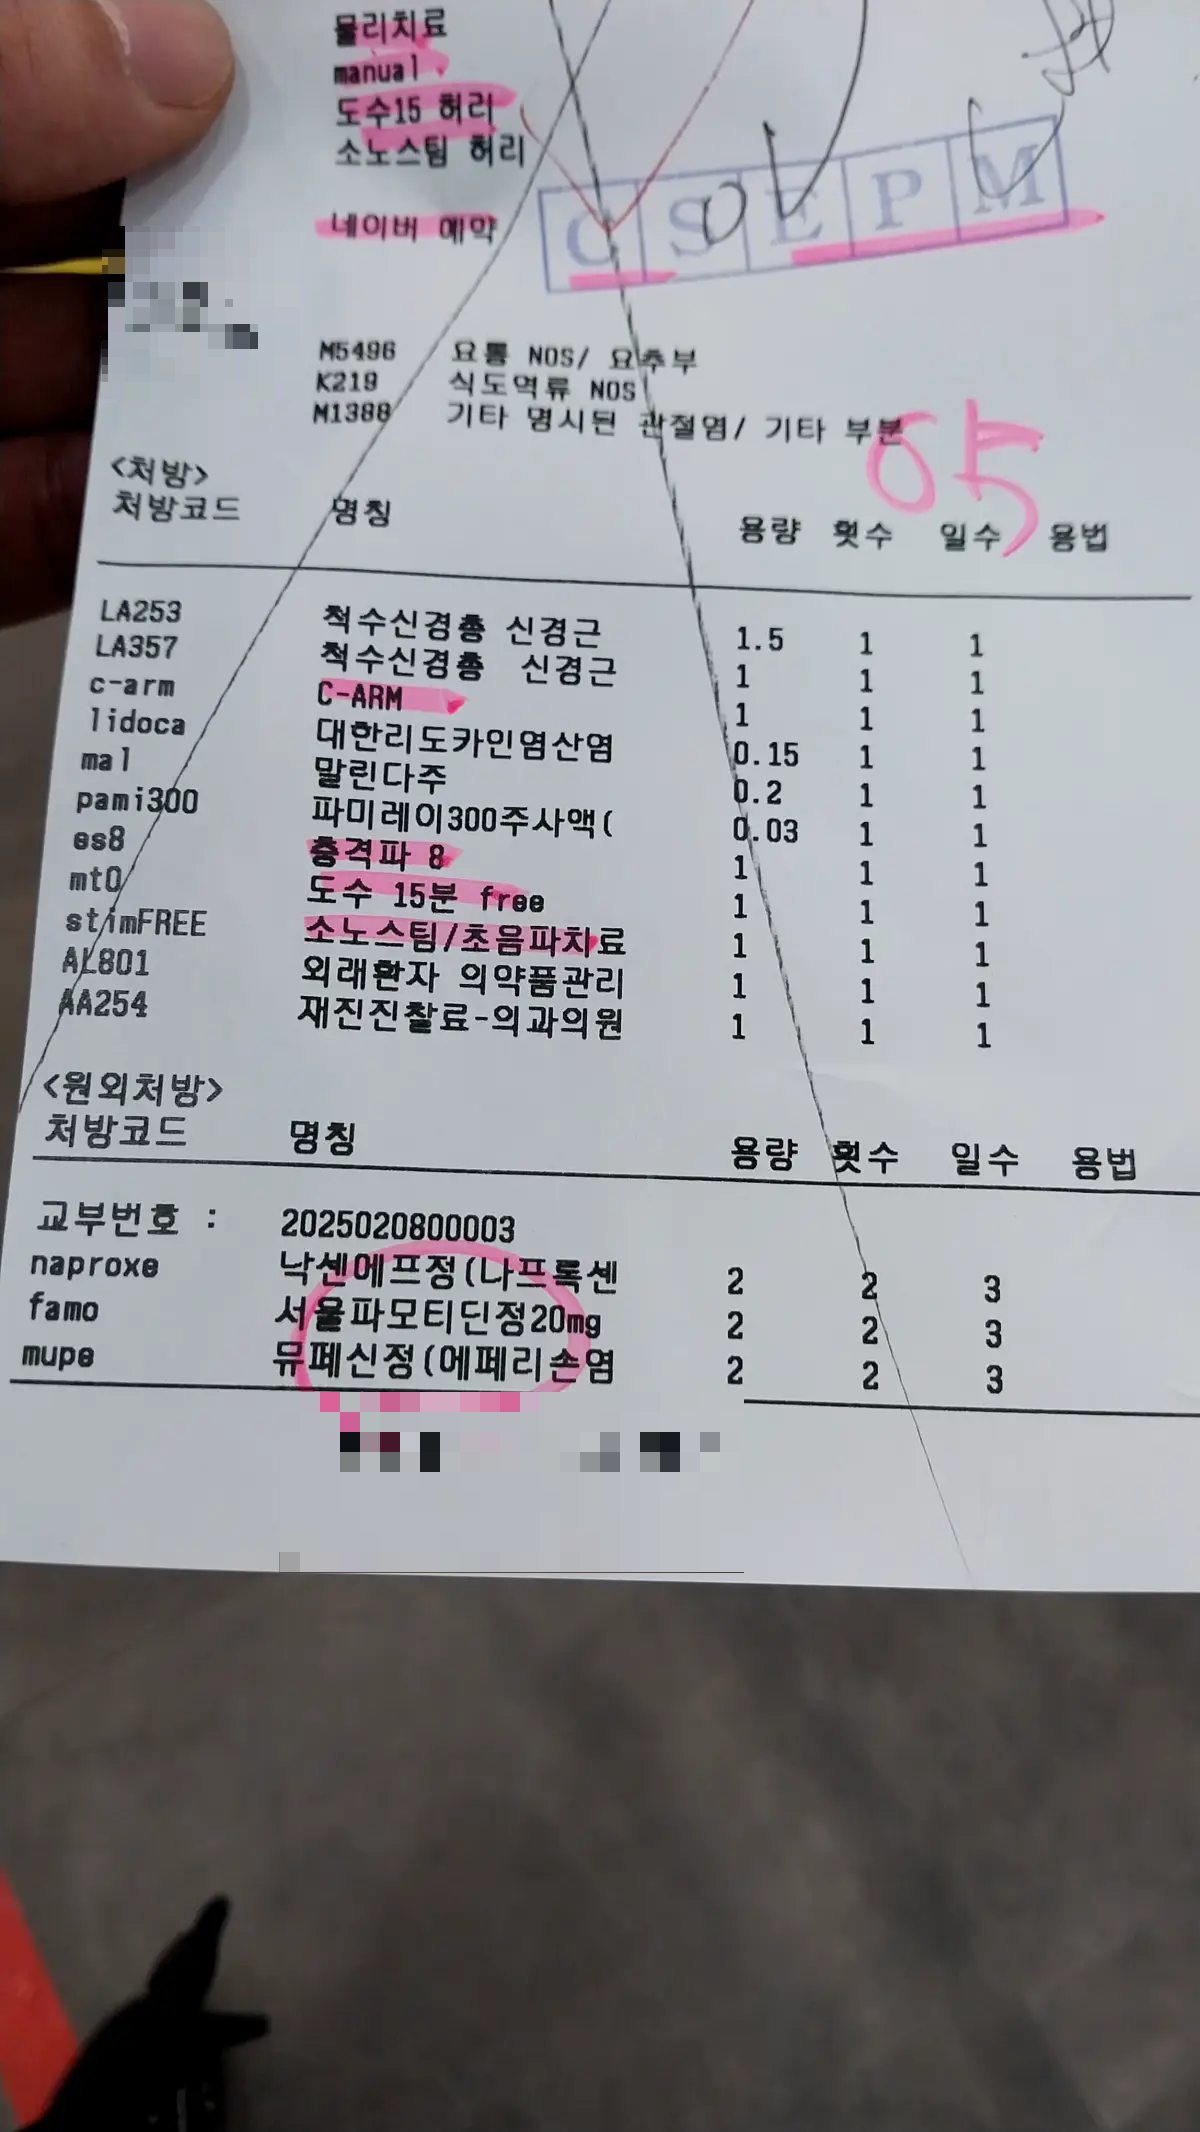 물리치료
manual
도수15 허리
소노스팀 허리
네이버 예약
C S E P M
M5496 요통 NOS/ 요추부
K219 식도역류 NOS
M1388 기타 명시된 관절염/ 기타 부분
05
<처방>
처방코드 명칭 용량 횟수 일수 용법
LA253 척수신경총 신경근 1.5 1 1
LA357 척수신경총 신경근 1 1 1
c-arm C-ARM 1 1 1
lidoca 대한리도카인염산염 0.15 1 1
mal 말린다주 0.2 1 1
pami300 파미레이300주사액( 0.03 1 1
es8 충격파 8 1 1 1
mt0 도수 15분 free 1 1 1
stimFREE 소노스팀/초음파치료 1 1 1
AL801 외래환자 의약품관리 1 1 1
AA254 재진진찰료-의과의원 1 1 1
<원외처방>
처방코드 명칭 용량 횟수 일수 용법
교부번호 : 2025020800003
naproxe 낙센에프정(나프록센 2 2 3
famo 서울파모티딘정20mg 2 2 3
mupe 뮤페신정(에페리손염 2 2 3